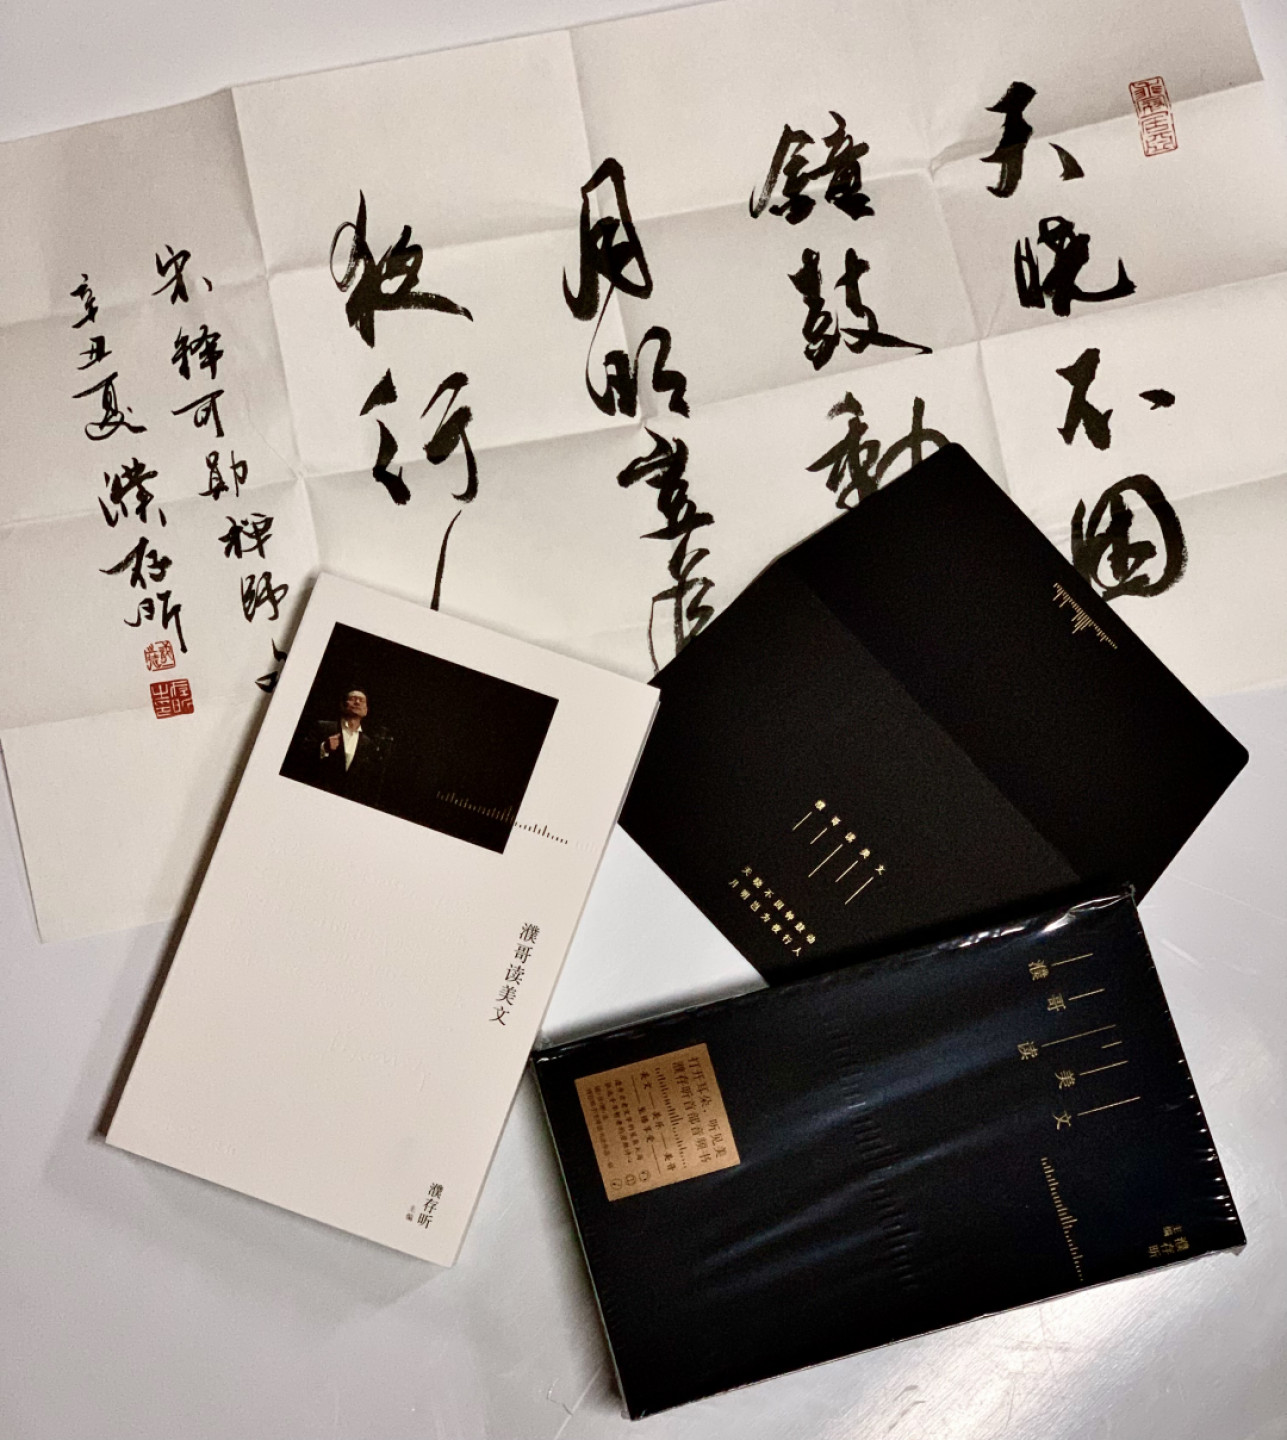 天晓不因
鐘鼓動
月明豈為
夜行
宋释可勋禅师
辛丑夏 濮存昕
濮哥读美文
濮存昕
主编
濮哥读美文
天晓不因钟鼓动
月明岂为夜行人
濮哥读美文
濮存昕
主编
打开耳朵，听见美
濮存昕首部音频书